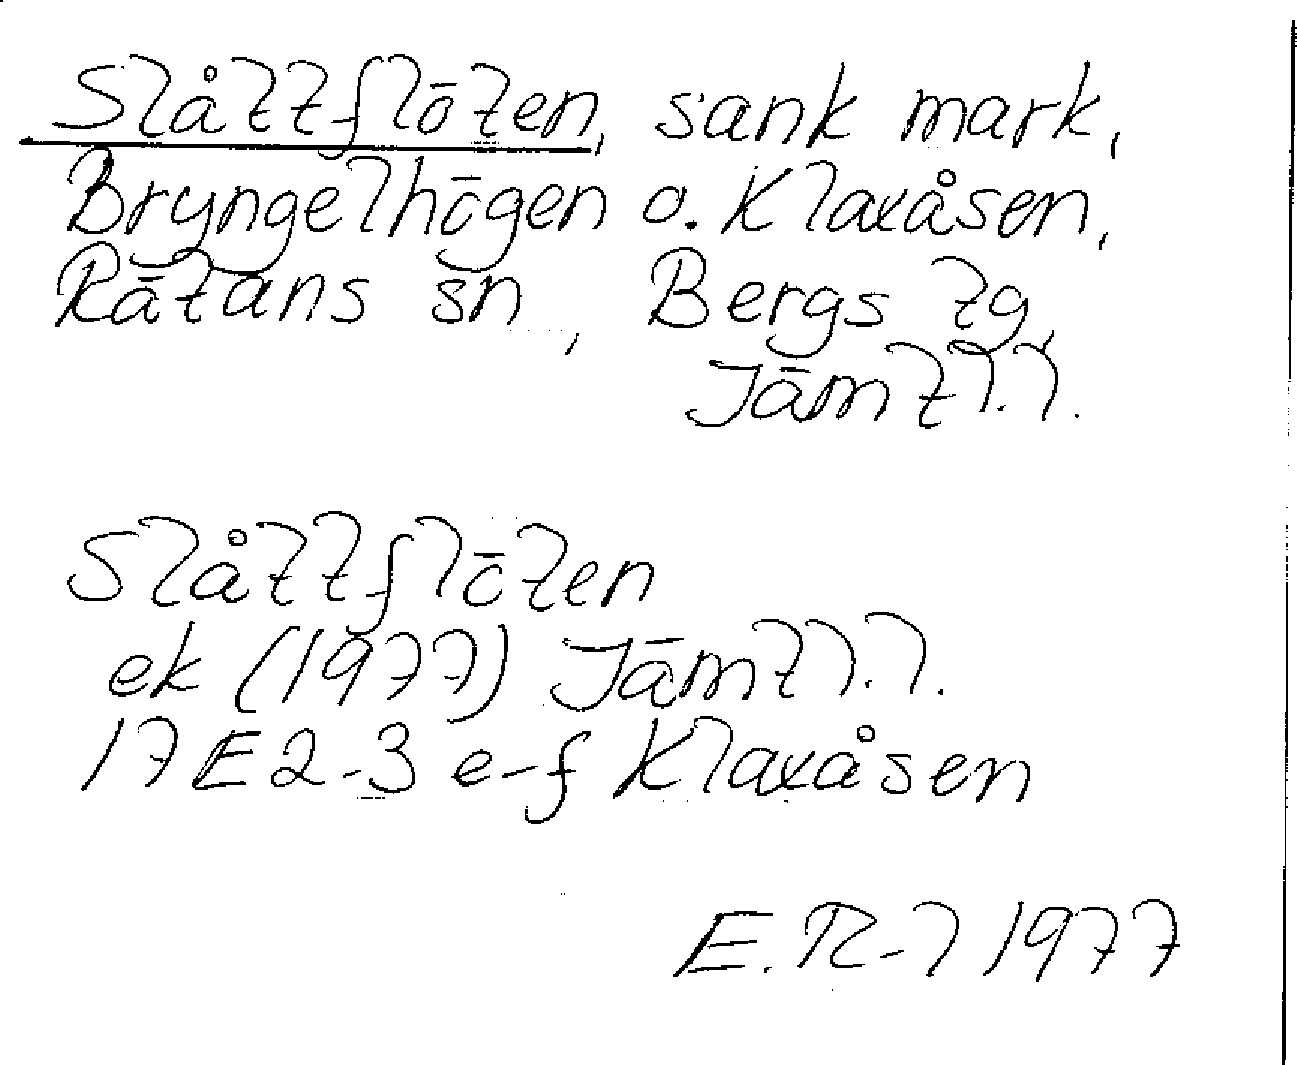 Slåttflöten, sank mark,
Bryngelhögen o. Klaxåsen,
Rätans sn, Bergs tg,
Jämtl.l.
Slåttflöten
ek (1977) Jämtl.l.
17E2-3 e-f Klaxåsen
E.R-l 1977